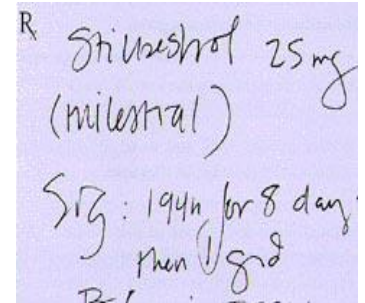 Rx Stilbestrol 25 mg
(milestrol)
Sig: 1 q4h for 8 day
then 1 qod